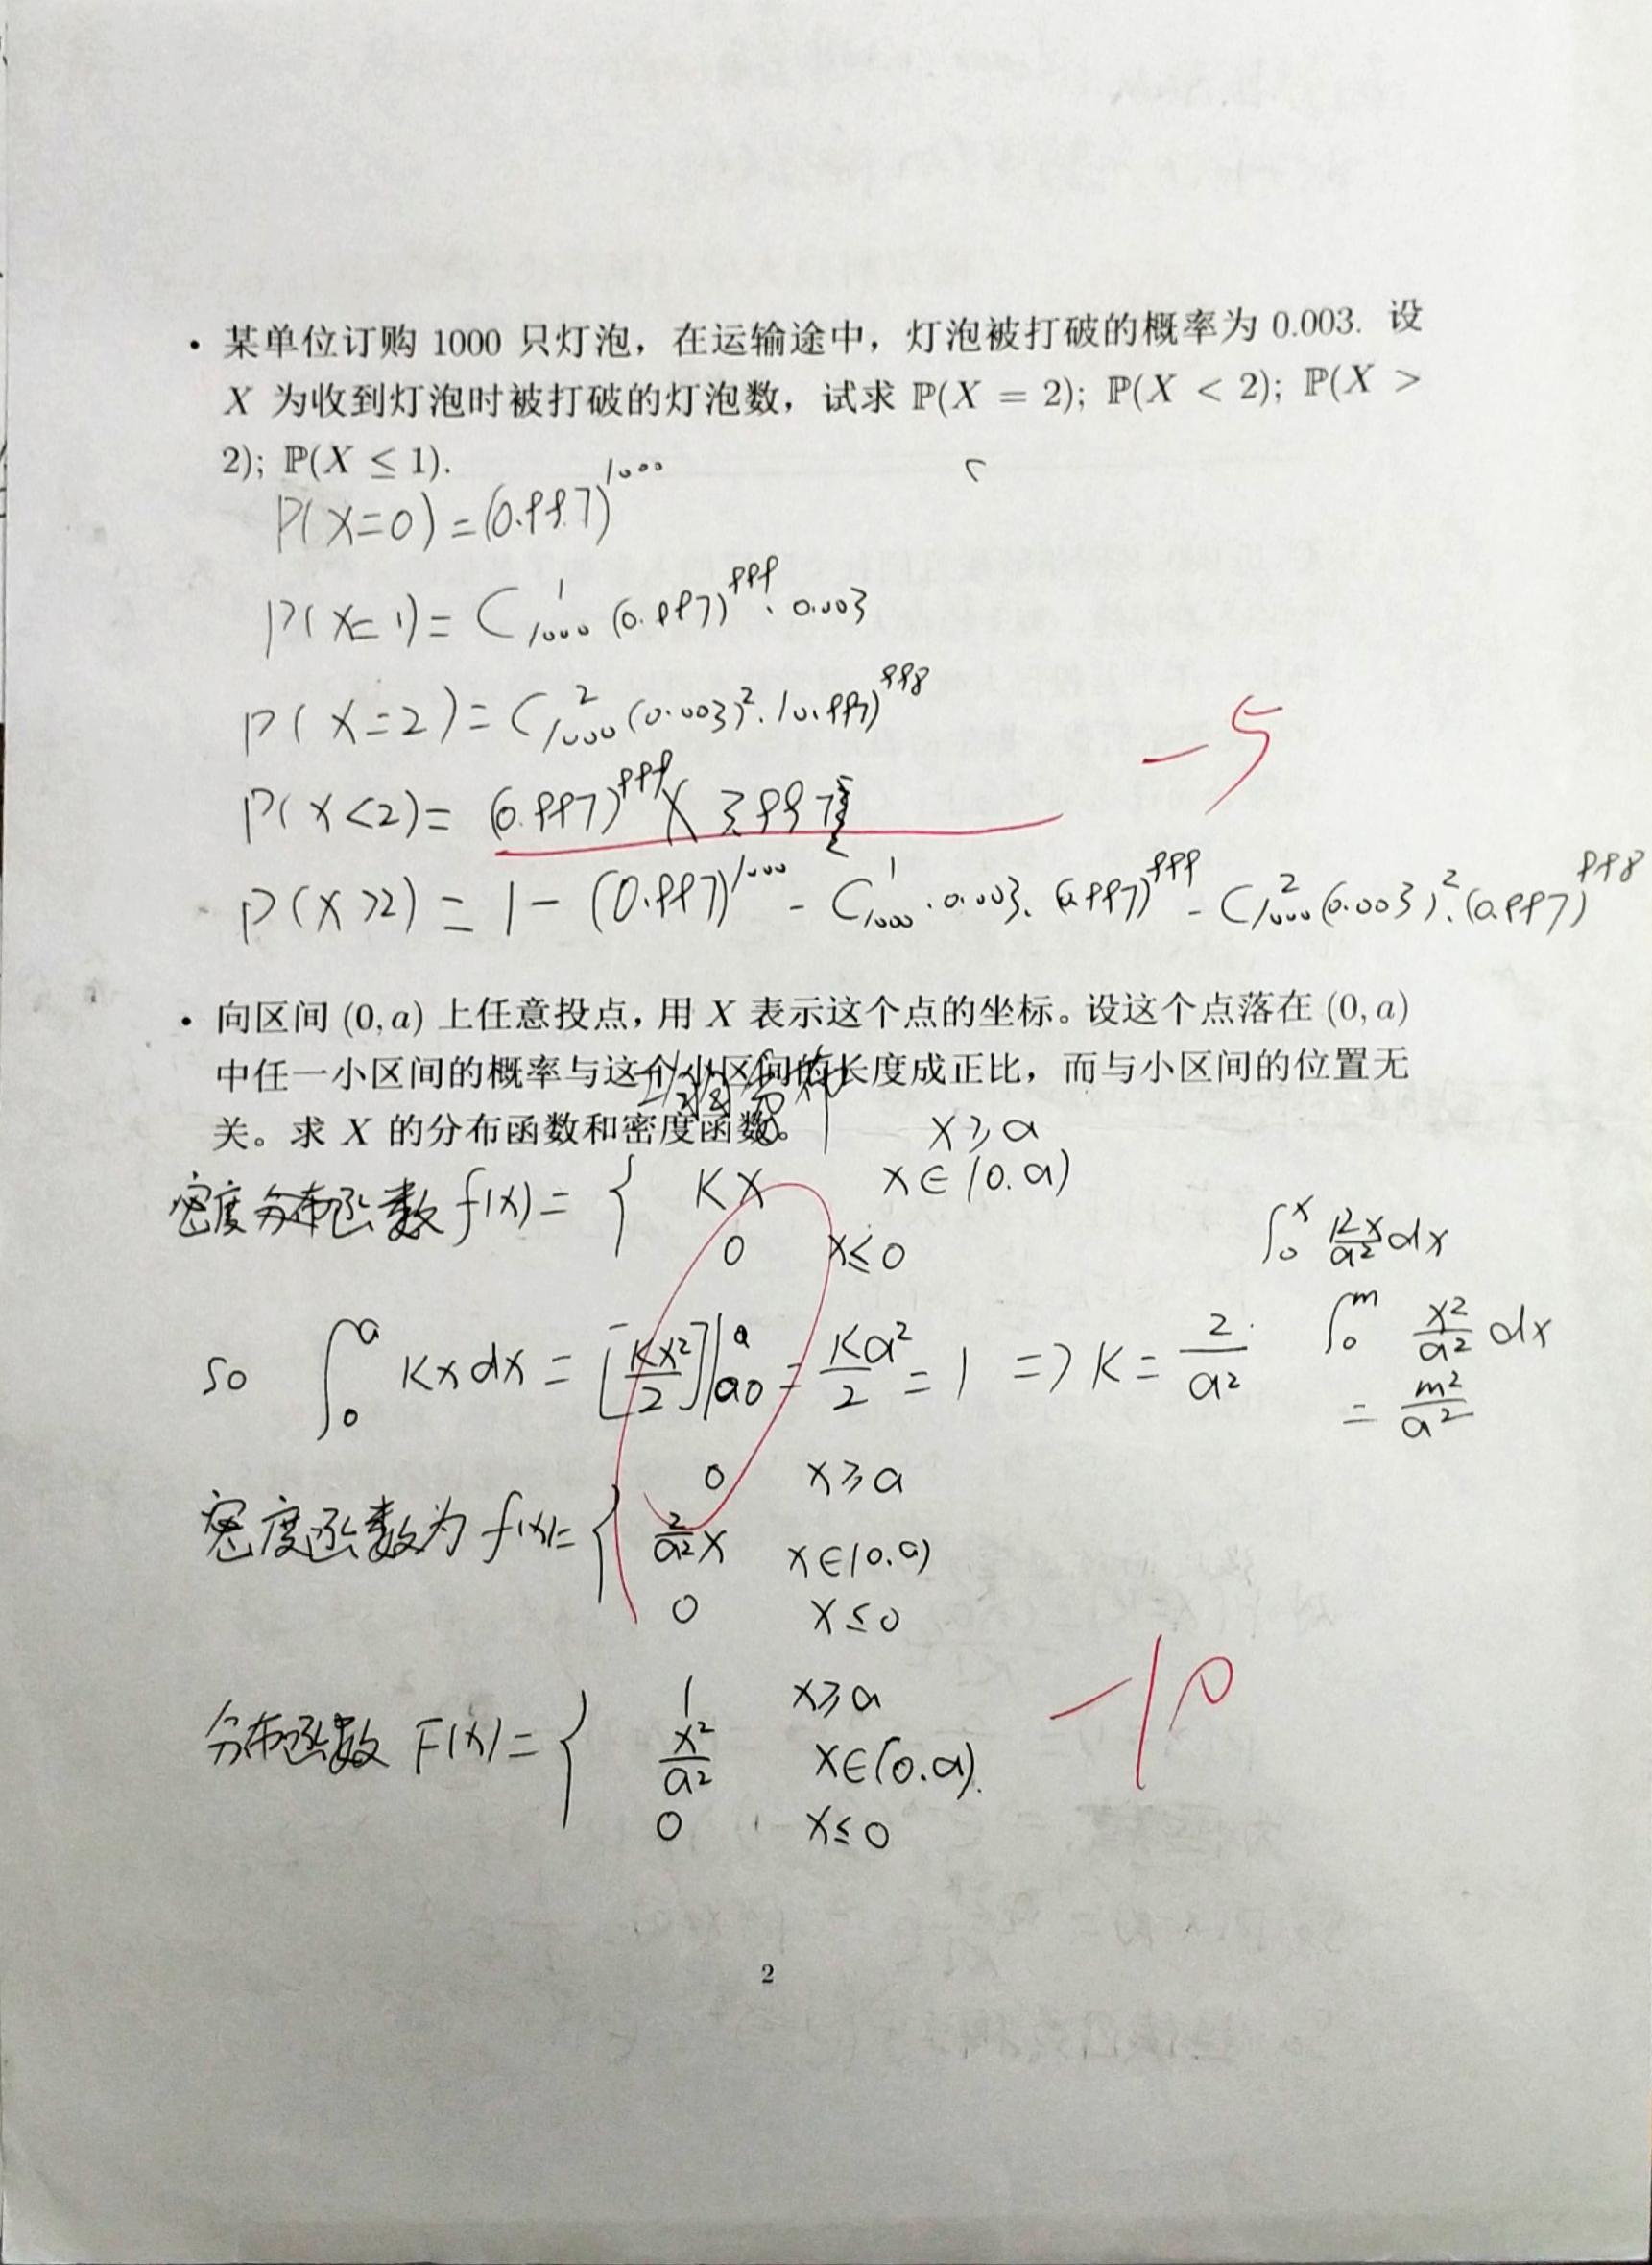 • 某单位订购 1000 只灯泡，在运输途中，灯泡被打破的概率为 0.003. 设
X 为收到灯泡时被打破的灯泡数，试求 ℙ(X = 2); ℙ(X < 2); ℙ(X >
2); ℙ(X ≤ 1).
P(X=0)=(0.997)^1000
P(X=1)= C_1000^1 (0.997)^999 · 0.003
P(X=2)= C_1000^2 (0.003)^2 · (0.997)^998
−5
P(X<2)= (0.997)^999 × 3.997
P(X>2) = 1 − (0.997)^1000 − C_1000^1 · 0.003 · (0.997)^999 − C_1000^2 (0.003)^2 · (0.997)^998
• 向区间 (0, a) 上任意投点，用 X 表示这个点的坐标。设这个点落在 (0, a)
中任一小区间的概率与这个小区间的长度成正比，而与小区间的位置无
关。求 X 的分布函数和密度函数。
0 1 x≥a
密度分布函数 f(x)= { Kx x∈(0.a)
0 x≤0
∫_0^x 2x/a² dx
so ∫_0^a Kx dx = [Kx²/2]|_0^a = Ka²/2 = 1 => K = 2/a²
∫_0^m x²/a² dx
= m²/a²
0 x≥a
密度函数为 f(x)= { 2/a² x x∈(0.a)
0 x≤0
−10
1 x≥a
分布函数 F(x)= { x²/a² x∈(0.a).
0 x≤0
2